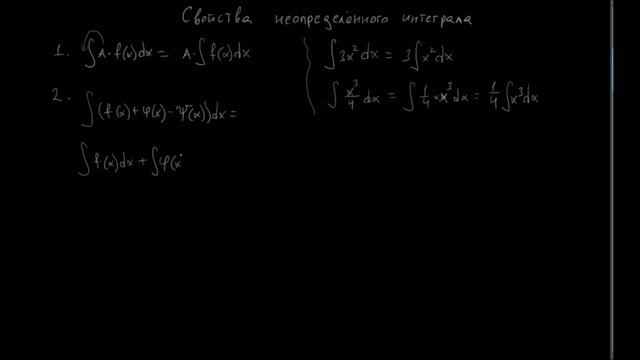 Свойства неопределённого интеграла
1. ∫A·f(x)dx = A·∫f(x)dx
∫3x²dx = 3∫x²dx
∫x³/4 dx = ∫1/4·x³dx = 1/4∫x³dx
2. ∫(f(x)+φ(x)-Ψ(x))dx=
∫f(x)dx+∫φ(x